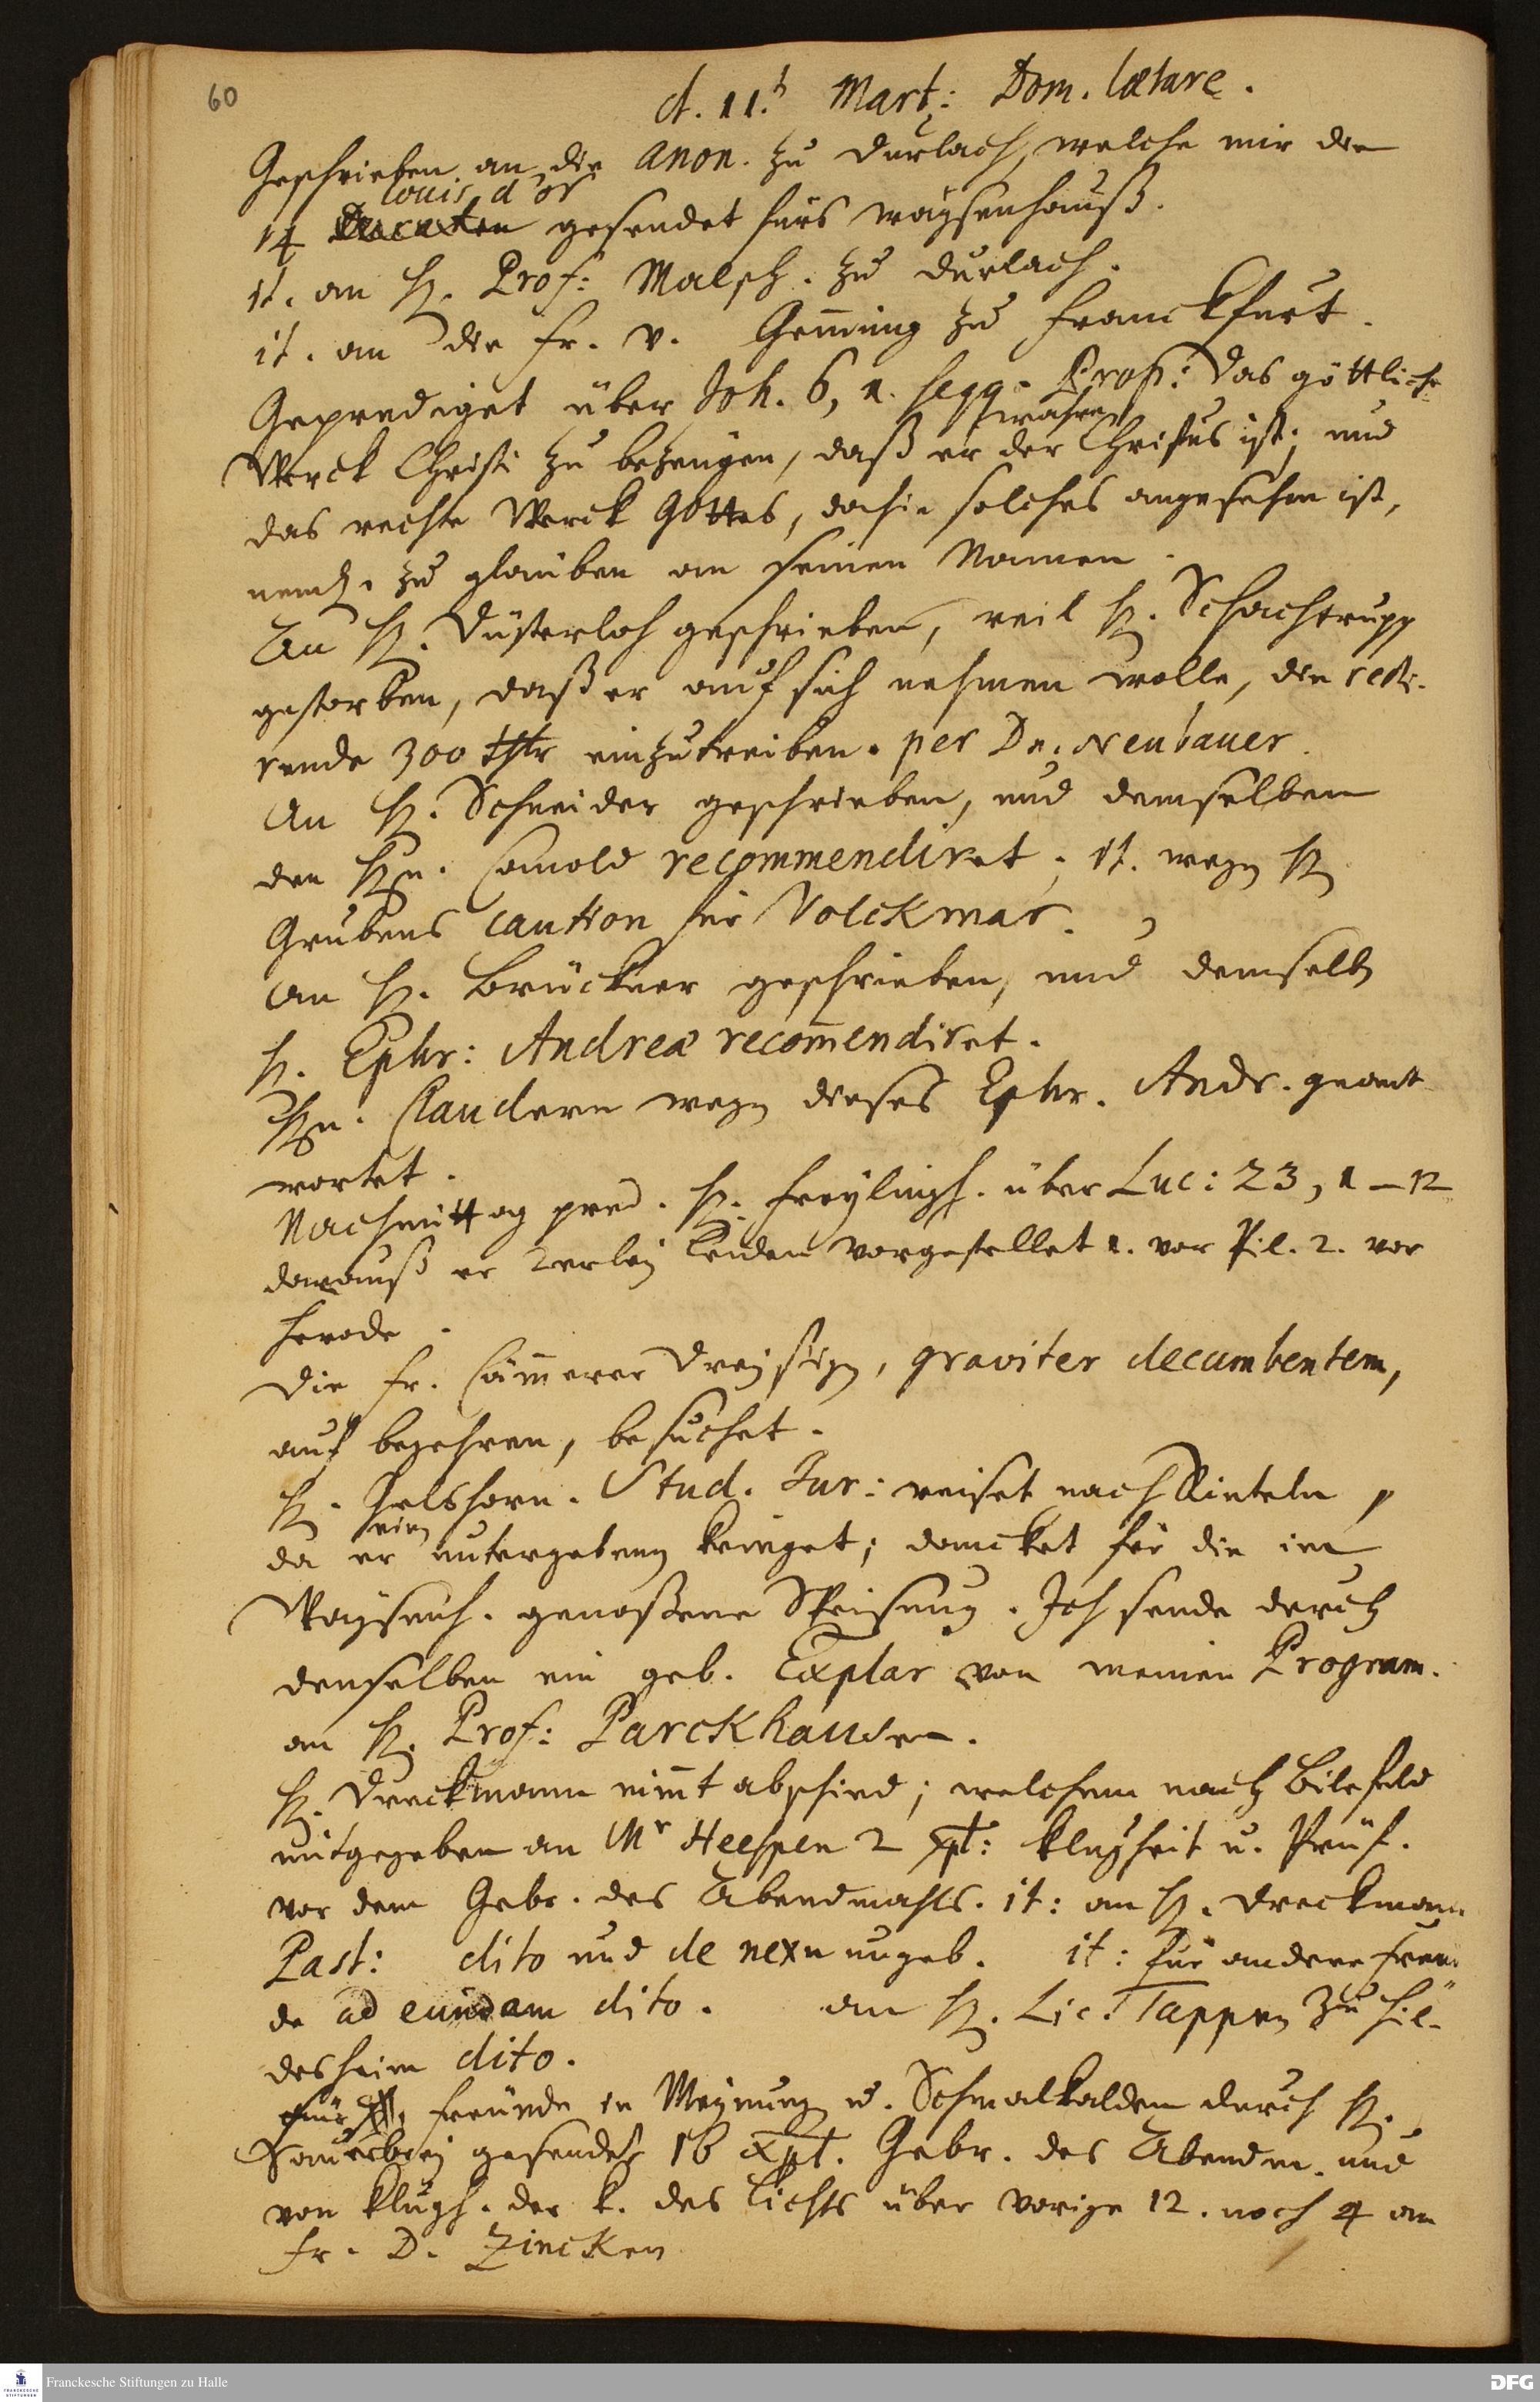 60
d. 11.t Mart: Dom. Lætare.
Geschrieben an die anon. zu Durlach, welche mir die
louis d'or
14 Ducaten gesendet fürs Waysenhauß.
it. an H. Prof: Malsch. zu Durlach.
it. an die Fr. v. Gem̄ing zu Franckfurt.
Geprediget über Joh. 6, 1. seqq. Prop: Das göttliche
wahre
Werck Christi zu bezeugen, daß er der Christus ist; und
das rechte Werck Gottes, dahin solches angesehen ist,
neml. zu glauben an seinen Namen.
An H. Düsterloh geschrieben, weil H. Schachtrupp
gestorben, daß er auf sich nehmen wolle, die resti-
rende 300 thlr einzutreiben. per Dn. Neubauer.
An H. Schneider geschrieben, und demselben
den Hn. recommendiret; it. wegen H
Grubens caution für Volckmar.
An H. Brückner geschrieben, und demselben
H. Ephr: Andreæ recom̄endiret.
Hn. Claudern wegen dieses Ephr. Andr. geant
wortet.
Nachmittag pred. H. Freylingh. über Luc: 23, 1 – 12
darauß er 2erley Leiden vorgestellet 1. vor Pil. 2. vor
Herode.
Die Fr. Cäm̄erer Dreyßigen, graviter decumbentem,
auf begehren, besuchet.
H. Gelshorn. Stud. Jur: reiset nach Rinteln,
ein
da er untergebenen krieget; dancket für die im
Waysenh. genoßene Speisung. Ich sende durch
denselben ein geb. Explar von meinen Program.
an H. Prof: Parckhausen.
H. Dreckmann nim̄t abschied; welchem nach Bilefeld
mitgegeben an Mr Heespen 2 Expl: Klugheit u. Prüf.
vor dem Gebr. des Abendmahls. it: an H. Dreckmann
Past: dito und de nexu ungeb. it: für andere Freun
de ad eundam dito. an H. Lic. Tappen zu Hil-
desheim dito.
für Freunde in Meynung u. Schmalkalden durch H.
Sauerbrey gesendet 16 Expl. Gebr. des Abendm. und
von Klugh. der K. des Lichts über vorige 12. noch 4 an
Fr. D. Zincken
Franckesche Stiftungen zu Halle
DFG